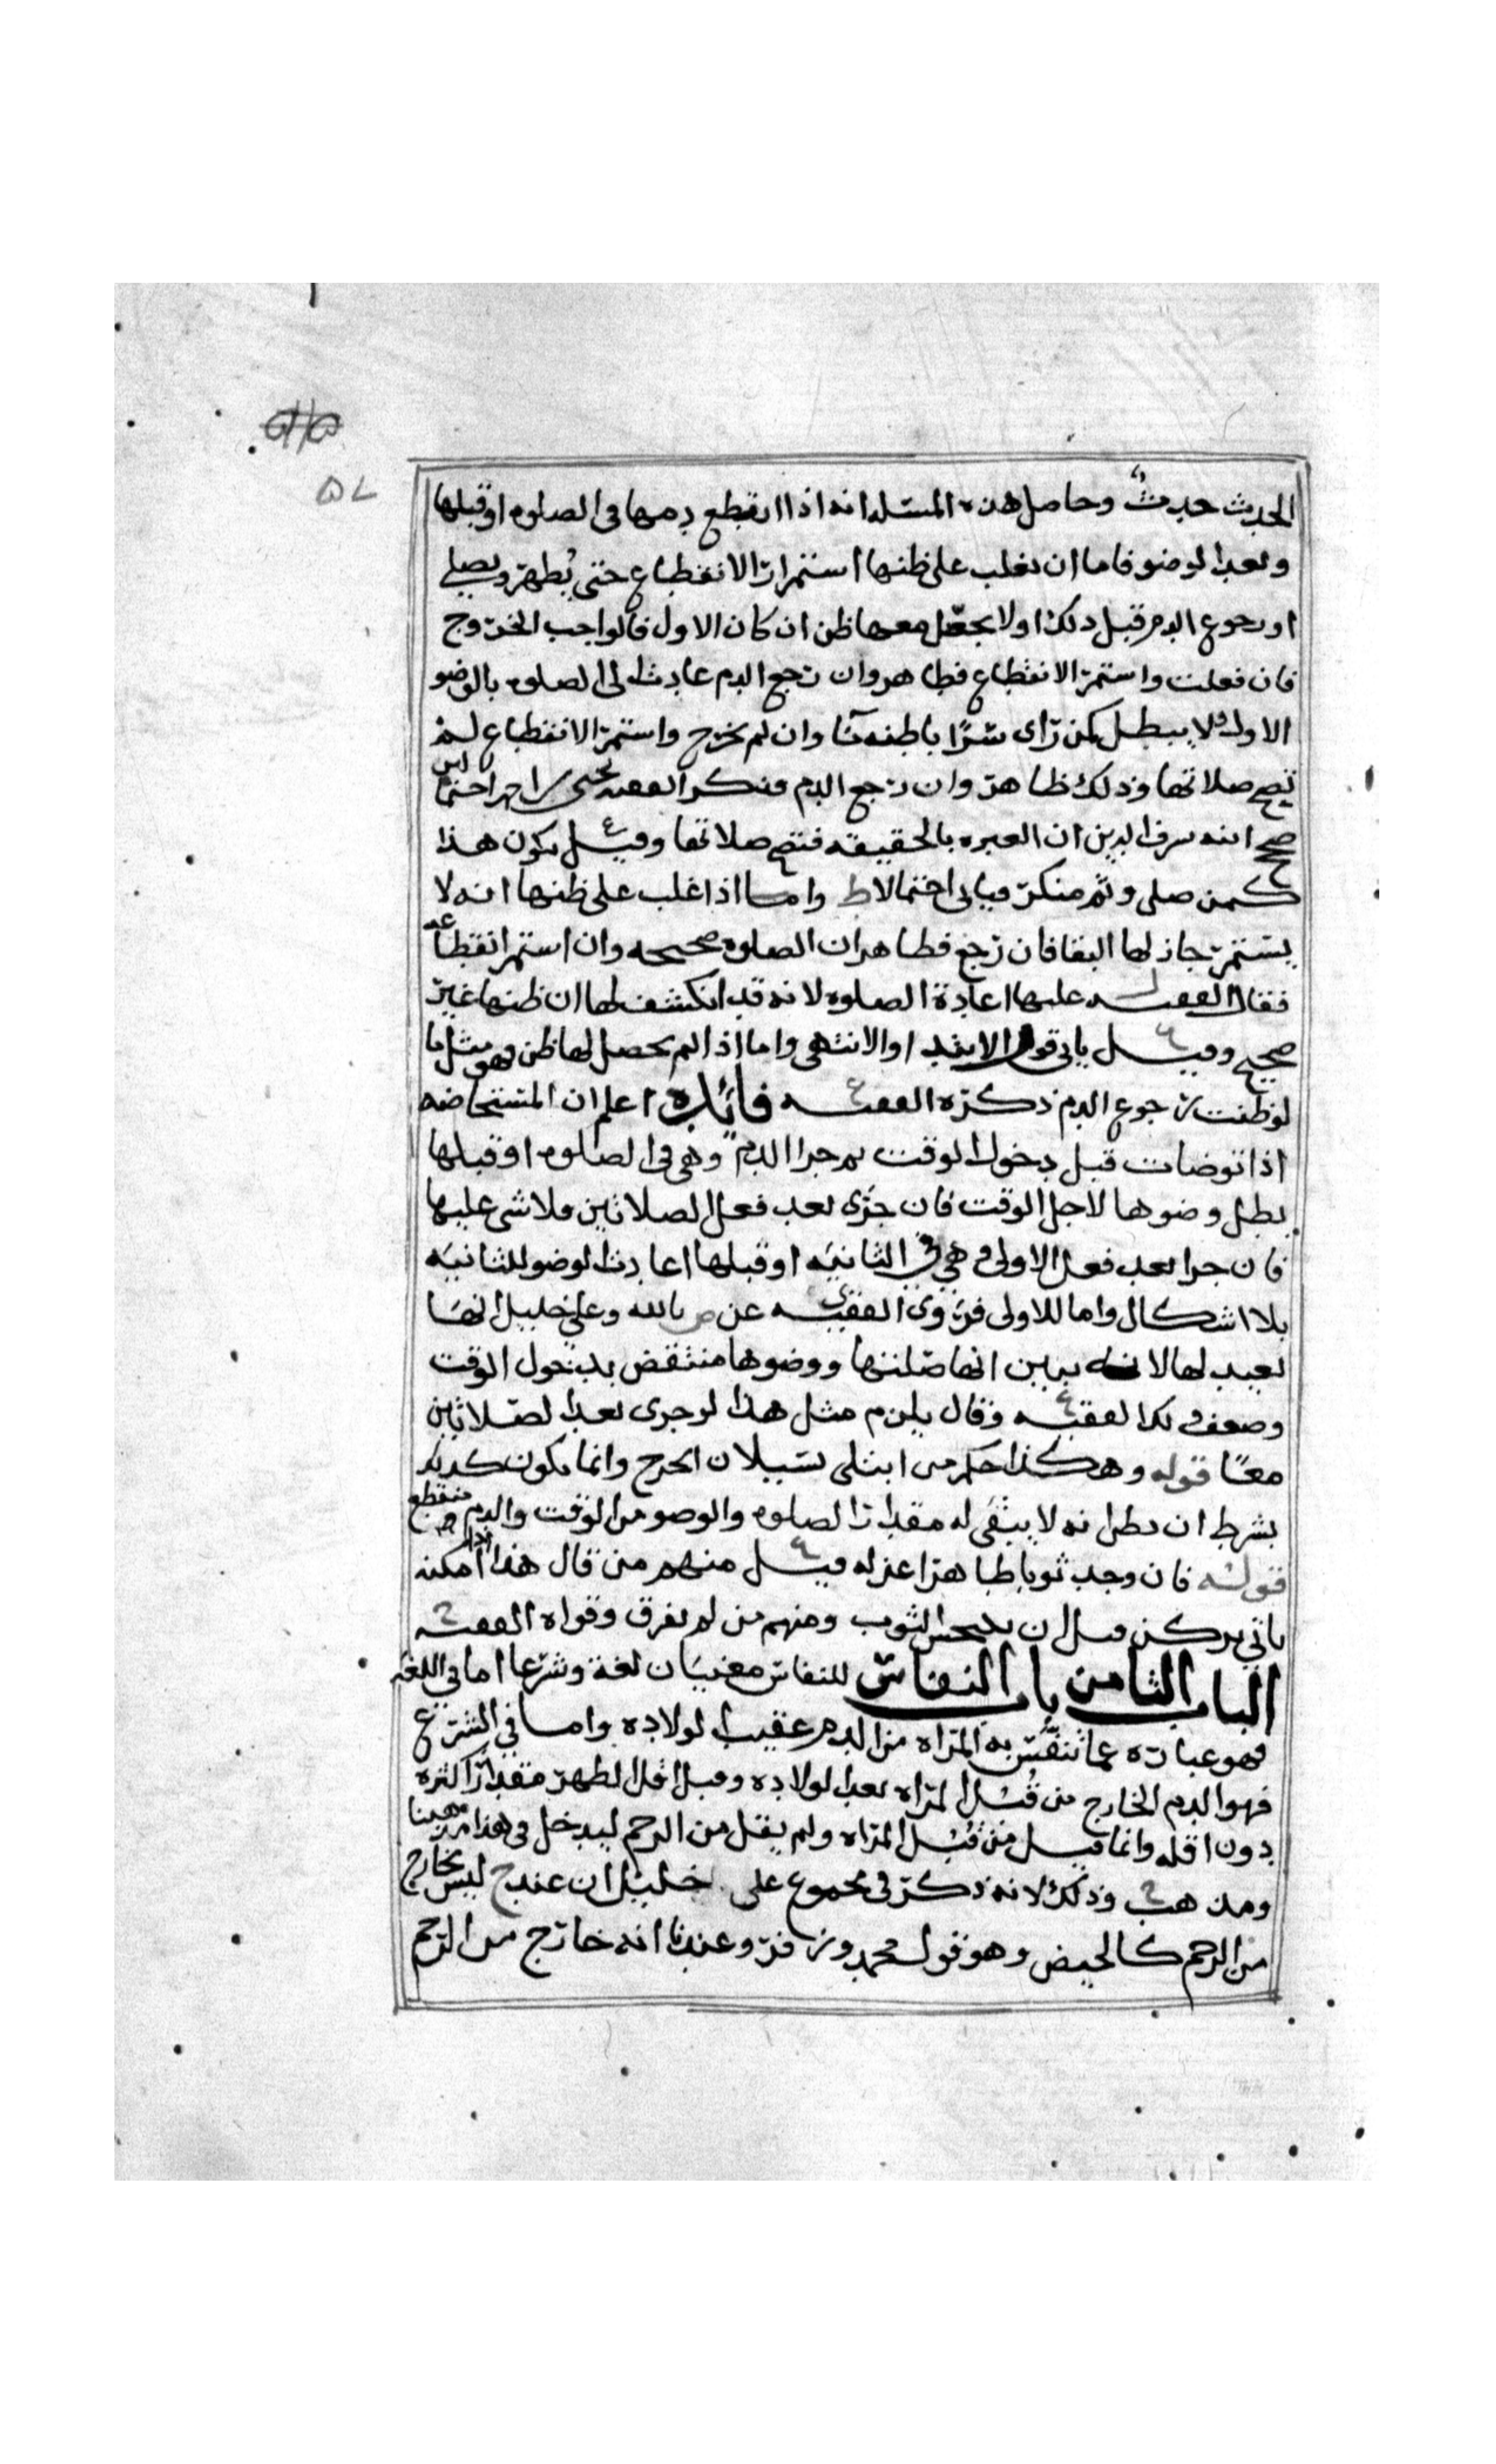 ٥٧
الحدث حدث وحاصل هذه المسئله انه اذا انقطع دمها في الصلوه او قبلها
وبعد الوضو فاما ان يغلب على ظنها استمرار الانقطاع حتى تطهر وتصلي
او رجوع الدم قبل ذلك او لا يحصل معها ظن ان كان الاول فالواجب الخروج
فان فعلت واستمر الانقطاع فظاهر وان رجع الدم عادت الى الصلوه بالوضو
الاول ولا يبطل كمن راى سرابا ظنه مآ وان لم تخرج واستمر الانقطاع لم
تصح صلاتها وذلك ظاهر وان رجع الدم فذكر الفقيه يحيى احتمالين
صح انه شرف الدين ان العبره بالحقيقه فتصح صلاتها وقيل يكون هذا
كمن صلى وثم منكر فياتي احتمالاط واما اذا غلب على ظنها انه لا
يستمر جاز لها البقا فان رجع فظاهر ان الصلوه صحيحه وان استمر انقطاعه
فقال الفقيه عليها اعادة الصلوه لانه قد انكشف لها ان ظنها غير
صحيح وقيل ياتي قول الابتدا والانتهى واما اذا لم يحصل لها ظن فهو مثل ما
لو ظنت رجوع الدم ذكره الفقيه فائده اعلم ان المستحاضه
اذا توضات قبل دخول الوقت ثم جرا الدم وهي في الصلوه او قبلها
بطل وضوها لاجل الوقت فان جرى بعد فعل الصلاتين فلا شي عليها
فان جرا بعد فعل الاولى وهي في الثانيه او قبلها اعادت الوضو للثانيه
بلا اشكال واما للاولى فروى الفقيه عن ص بالله وعلي خليل انها
تعيد لها لانه تبين انها صلتها ووضوها منتقض بدخول الوقت
وضعف ذلك الفقيه وقال يلزم مثل هذا لو جرى بعد الصلاتين
معًا قوله وهكذا حكم من ابتلى بسيلان الجرح وانما يكون كذلك
بشرط ان يظن انه لا يبقى له مقدار الصلوه والوضو من الوقت والدم منقطع
قوله فان وجد ثوبا طاهرا عزله قيل منهم من قال هذا اذا امكنه
ياتي بركن قبل ان ينجس الثوب ومنهم من لم يفرق وقواه الفقيه
الباب الثامن باب النفاس للنفاس معنيان لغة وشرعا اما في اللغه
فهو عباره عما تتنفس به المراه من الدم عقيب الولاده واما في الشرع
فهو الدم الخارج من قُبُل المراه بعد الولاده وقبل اقل الطهر مقدار اكثره
دون اقله وانما قيل من قُبُل المراه ولم يقل من الرحم ليدخل في هذا مذهبنا
ومذهب ح وذلك لانه ذكر في مجموع علي خليل ان عند ح ليس بخارج
من الرحم كالحيض وهو قول محمد وزفر وعندنا انه خارج من الرحم